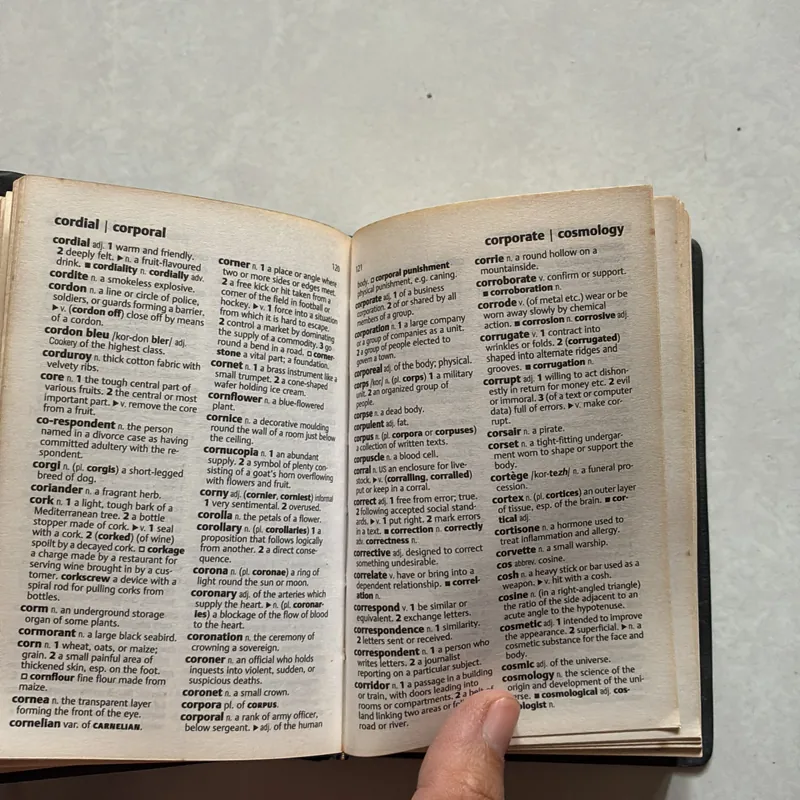 cordial | corporal
cordial adj. 1 warm and friendly.
2 deeply felt. ▶n. a fruit-flavoured
drink. ■ cordiality n. cordially adv.
cordite n. a smokeless explosive.
cordon n. a line or circle of police,
soldiers, or guards forming a barrier.
▶v. (cordon off) close off by means
of a cordon.
cordon bleu /kor-don bler/ adj.
Cookery of the highest class.
corduroy n. thick cotton fabric with
velvety ribs.
core n. 1 the tough central part of
various fruits. 2 the central or most
important part. ▶v. remove the core
from a fruit.
co-respondent n. the person
named in a divorce case as having
committed adultery with the re-
spondent.
corgi n. (pl. corgis) a short-legged
breed of dog.
coriander n. a fragrant herb.
cork n. 1 a light, tough bark of a
Mediterranean tree. 2 a bottle
stopper made of cork. ▶v. 1 seal
with a cork. 2 (corked) (of wine)
spoilt by a decayed cork. □ corkage
a charge made by a restaurant for
serving wine brought in by a cus-
tomer. corkscrew a device with a
spiral rod for pulling corks from
bottles.
corm n. an underground storage
organ of some plants.
cormorant n. a large black seabird.
corn n. 1 wheat, oats, or maize;
grain. 2 a small painful area of
thickened skin, esp. on the foot.
□ cornflour fine flour made from
maize.
cornea n. the transparent layer
forming the front of the eye.
cornelian var. of CARNELIAN.
120
corner n. 1 a place or angle where
two or more sides or edges meet.
2 a free kick or hit taken from a
corner of the field in football or
hockey. ▶v. 1 force into a situation
from which it is hard to escape.
2 control a market by dominating
the supply of a commodity. 3 go
round a bend in a road. □ corner-
stone a vital part; a foundation.
cornet n. 1 a brass instrument like a
small trumpet. 2 a cone-shaped
wafer holding ice cream.
cornflower n. a blue-flowered
plant.
cornice n. a decorative moulding
round the wall of a room just below
the ceiling.
cornucopia n. 1 an abundant
supply. 2 a symbol of plenty con-
sisting of a goat's horn overflowing
with flowers and fruit.
corny adj. (cornier, corniest) informal
1 very sentimental. 2 overused.
corolla n. the petals of a flower.
corollary n. (pl. corollaries) 1 a
proposition that follows logically
from another. 2 a direct conse-
quence.
corona n. (pl. coronae) a ring of
light round the sun or moon.
coronary adj. of the arteries which
supply the heart. ▶n. (pl. coronar-
ies) a blockage of the flow of blood
to the heart.
coronation n. the ceremony of
crowning a sovereign.
coroner n. an official who holds
inquests into violent, sudden, or
suspicious deaths.
coronet n. a small crown.
corpora pl. of CORPUS.
corporal n. a rank of army officer,
below sergeant. ▶adj. of the human
121
corporate | cosmology
body. □ corporal punishment
physical punishment, e.g. caning.
corporate adj. 1 of a business
corporation. 2 of or shared by all
members of a group.
corporation n. 1 a large company
or a group of companies as a unit.
2 a group of people elected to
govern a town.
corporeal adj. of the body; physical.
corps /kor/ n. (pl. corps) 1 a military
unit. 2 an organized group of
people.
corpse n. a dead body.
corpulent adj. fat.
corpus n. (pl. corpora or corpuses)
a collection of written texts.
corpuscle n. a blood cell.
corral n. US an enclosure for live-
stock. ▶v. (corralling, corralled)
put or keep in a corral.
correct adj. 1 free from error; true.
2 following accepted social stand-
ards. ▶v. 1 put right. 2 mark errors
in a text. ■ correction n. correctly
adv. correctness n.
corrective adj. designed to correct
something undesirable.
correlate v. have or bring into a
dependent relationship. ■ correl-
ation n.
correspond v. 1 be similar or
equivalent. 2 exchange letters.
correspondence n. 1 similarity.
2 letters sent or received.
correspondent n. 1 a person who
writes letters. 2 a journalist
reporting on a particular subject.
corridor n. 1 a passage in a building
or train, with doors leading into
rooms or compartments. 2 a belt of
land linking two areas or
road or river.
corrie n. a round hollow on a
mountainside.
corroborate v. confirm or support.
■ corroboration n.
corrode v. (of metal etc.) wear or be
worn away slowly by chemical
action. ■ corrosion n. corrosive adj.
corrugate v. 1 contract into
wrinkles or folds. 2 (corrugated)
shaped into alternate ridges and
grooves. ■ corrugation n.
corrupt adj. 1 willing to act dishon-
estly in return for money etc. 2 evil
or immoral. 3 (of a text or computer
data) full of errors. ▶v. make cor-
rupt.
corsair n. a pirate.
corset n. a tight-fitting undergar-
ment worn to shape or support the
body.
cortège /kor-tezh/ n. a funeral pro-
cession.
cortex n. (pl. cortices) an outer layer
of tissue, esp. of the brain. ■ cor-
tical adj.
cortisone n. a hormone used to
treat inflammation and allergy.
corvette n. a small warship.
cos abbrev. cosine.
cosh n. a heavy stick or bar used as a
weapon. ▶v. hit with a cosh.
cosine n. (in a right-angled triangle)
the ratio of the side adjacent to an
acute angle to the hypotenuse.
cosmetic adj. 1 intended to improve
the appearance. 2 superficial. ▶n. a
cosmetic substance for the face and
body.
cosmic adj. of the universe.
cosmology n. the science of the
origin and development of the uni-
verse. ■ cosmological adj. cos-
ologist n.